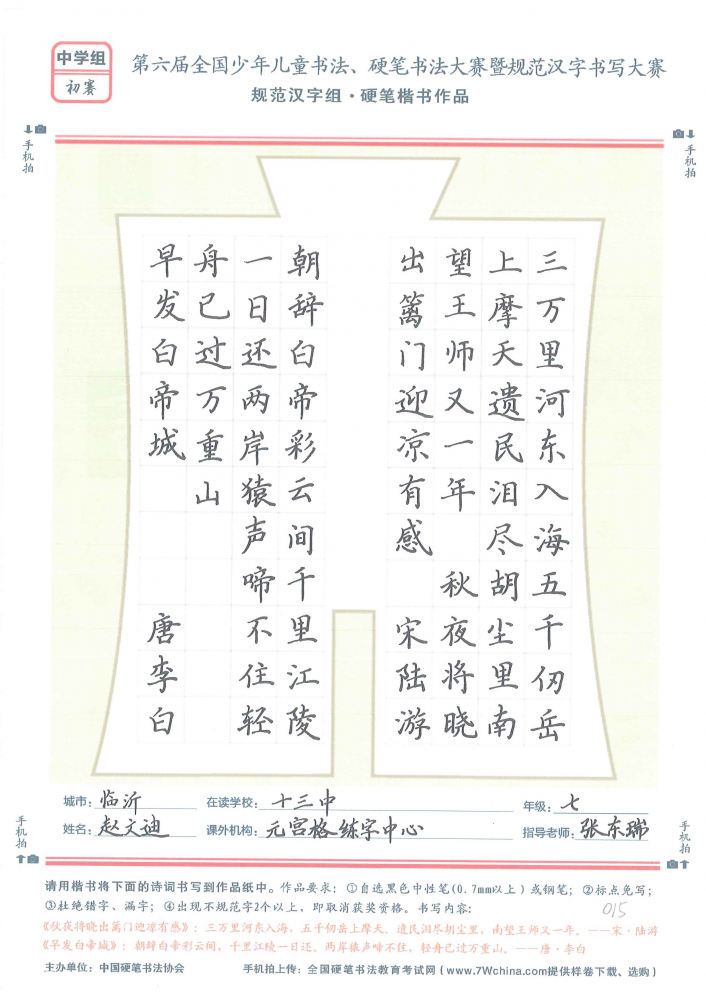 中学组
初赛
第六届全国少年儿童书法、硬笔书法大赛暨规范汉字书写大赛
规范汉字组·硬笔楷书作品
手机拍
手机拍
三万里河东入海五千仞岳
上摩天遗民泪尽胡尘里南
望王师又一年 秋夜将晓
出篱门迎凉有感 宋陆游
朝辞白帝彩云间千里江陵
一日还两岸猿声啼不住轻
舟已过万重山
早发白帝城 唐李白
城市：临沂 在读学校：十三中 年级：七
姓名：赵文迪 课外机构：元宫格练字中心 指导老师：张东瑞
手机拍
手机拍
请用楷书将下面的诗词书写到作品纸中。作品要求：①自选黑色中性笔(0.7mm以上)或钢笔；②标点免写；
③杜绝错字、漏字；④出现不规范字2个以上，即取消获奖资格。书写内容：
015
《秋夜将晓出篱门迎凉有感》：三万里河东入海，五千仞岳上摩天。遗民泪尽胡尘里，南望王师又一年。——宋·陆游
《早发白帝城》：朝辞白帝彩云间，千里江陵一日还。两岸猿声啼不住，轻舟已过万重山。——唐·李白
主办单位：中国硬笔书法协会 手机拍上传：全国硬笔书法教育考试网（www.7Wchina.com提供样卷下载、选购）